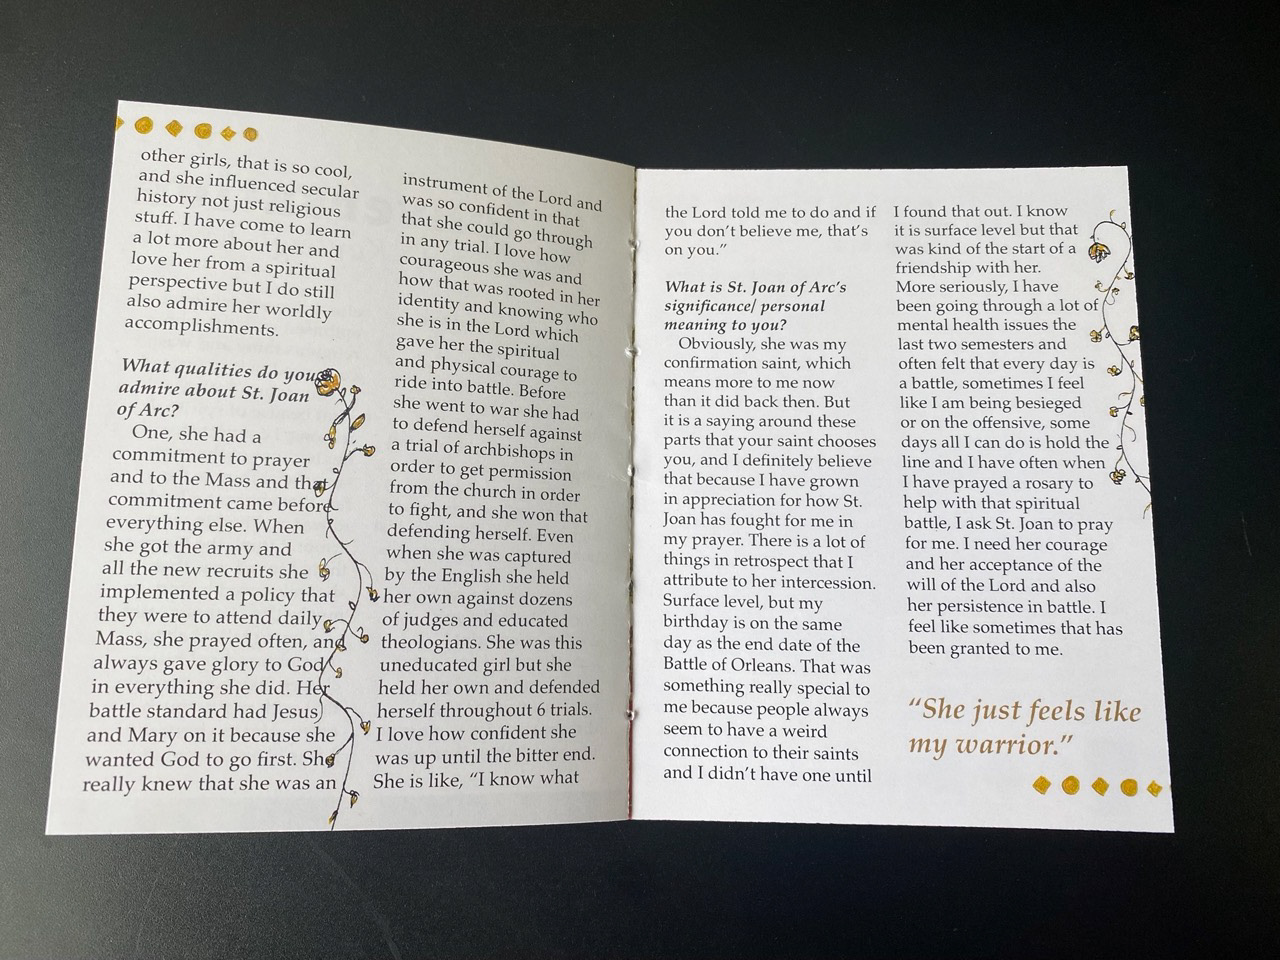 other girls, that is so cool,
and she influenced secular
history not just religious
stuff. I have come to learn
a lot more about her and
love her from a spiritual
perspective but I do still
also admire her worldly
accomplishments.
What qualities do you
admire about St. Joan
of Arc?
One, she had a
commitment to prayer
and to the Mass and that
commitment came before
everything else. When
she got the army and
all the new recruits she
implemented a policy that
they were to attend daily
Mass, she prayed often, and
always gave glory to God
in everything she did. Her
battle standard had Jesus
and Mary on it because she
wanted God to go first. She
really knew that she was an
instrument of the Lord and
was so confident in that
that she could go through
in any trial. I love how
courageous she was and
how that was rooted in her
identity and knowing who
she is in the Lord which
gave her the spiritual
and physical courage to
ride into battle. Before
she went to war she had
to defend herself against
a trial of archbishops in
order to get permission
from the church in order
to fight, and she won that
defending herself. Even
when she was captured
by the English she held
her own against dozens
of judges and educated
theologians. She was this
uneducated girl but she
held her own and defended
herself throughout 6 trials.
I love how confident she
was up until the bitter end.
She is like, “I know what
the Lord told me to do and if
you don’t believe me, that’s
on you.”
What is St. Joan of Arc’s
significance/ personal
meaning to you?
Obviously, she was my
confirmation saint, which
means more to me now
than it did back then. But
it is a saying around these
parts that your saint chooses
you, and I definitely believe
that because I have grown
in appreciation for how St.
Joan has fought for me in
my prayer. There is a lot of
things in retrospect that I
attribute to her intercession.
Surface level, but my
birthday is on the same
day as the end date of the
Battle of Orleans. That was
something really special to
me because people always
seem to have a weird
connection to their saints
and I didn’t have one until
I found that out. I know
it is surface level but that
was kind of the start of a
friendship with her.
More seriously, I have
been going through a lot of
mental health issues the
last two semesters and
often felt that every day is
a battle, sometimes I feel
like I am being besieged
or on the offensive, some
days all I can do is hold the
line and I have often when
I have prayed a rosary to
help with that spiritual
battle, I ask St. Joan to pray
for me. I need her courage
and her acceptance of the
will of the Lord and also
her persistence in battle. I
feel like sometimes that has
been granted to me.
“She just feels like
my warrior.”